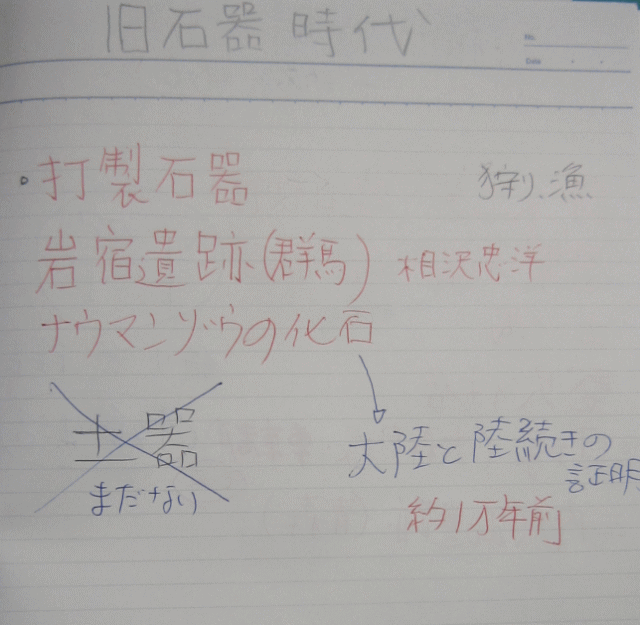 旧石器時代
No.
Date
・打製石器 狩り、漁
岩宿遺跡(群馬) 相沢忠洋
ナウマンゾウの化石
土器
まだない
大陸と陸続きの
証明
約1万年前